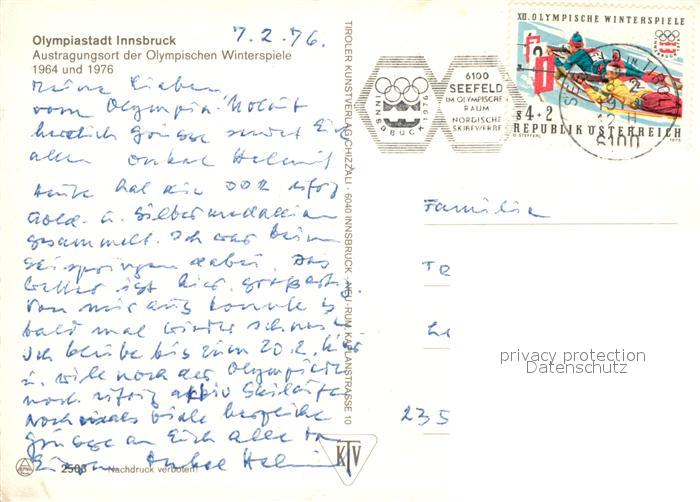 Olympiastadt Innsbruck
Austragungsort der Olympischen Winterspiele
1964 und 1976
7.2.76.
Meine Lieben,
vom Olympia-Notarzt
herzlich Grüsse sendet Euch
allen Onkel Helmut
Heute hat die DDR eifrig
Gold- u. Silbermedaillen
gesammelt. Ich war beim
Skispringen dabei. Das
Wetter ist hier großartig.
Von mir aus könnte es
bald mal wieder schneien
Ich bleibe bis zum 20.2. hier
u. will nach der Olympiade
noch eifrig aktiv Skilaufen
Nochmals viele herzliche
Grüsse an Euch alle von
Eurem Onkel Helmut
2503 Nachdruck verboten
TIROLER KUNSTVERLAG CHIZZALI · 6040 INNSBRUCK - NEU-RUM KAPLANSTRASSE 10
KTV
INNSBRUCK 1976
6100
SEEFELD
IM OLYMPISCHEN
RAUM
NORDISCHE
SKIBEWERBE
XII. OLYMPISCHE WINTERSPIELE
S 4+2
REPUBLIK ÖSTERREICH
1975
SEEFELD IN TIROL
6100
Familie
235
privacy protection
Datenschutz